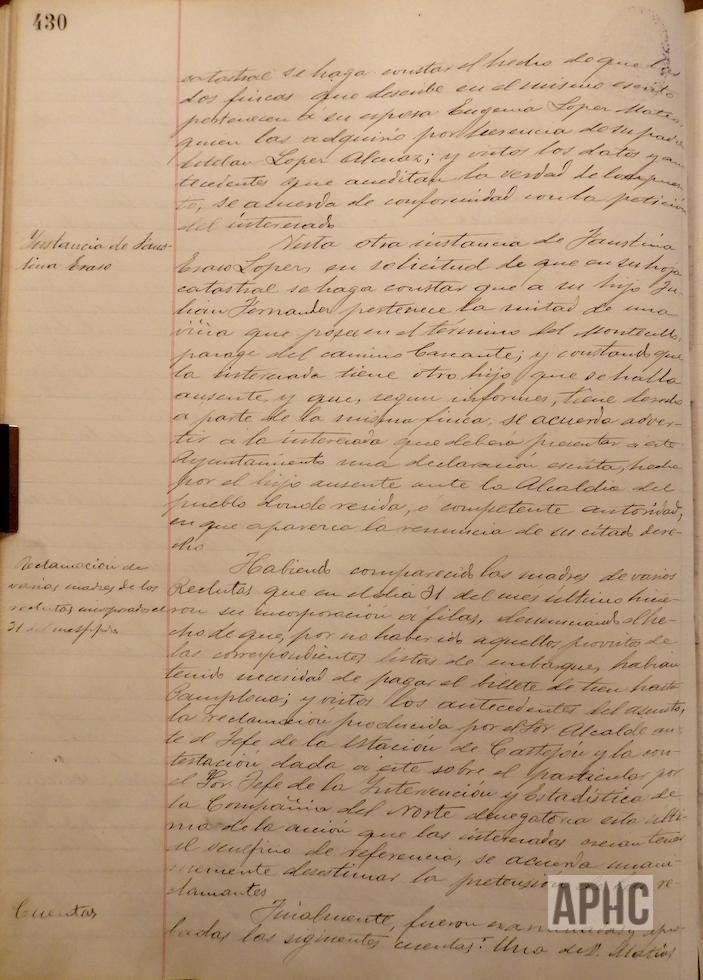 430
catastral se haga constar el hecho de que las
dos fincas que describe en el mismo escrito
pertenecen á su esposa Eugenia Lopez Mateo,
quien las adquirió por herencia de su padre
Lopez Alcaaz; y vistos los datos y an-
tecedentes que acreditan la verdad de lo expues-
to, se acuerda de conformidad con la petición
del interesado
Instancia de Faus-
tina Eraso
Vista otra instancia de Faustina
Eraso Lopez, en solicitud de que en su hoja
catastral se haga constar que a su hijo Ju-
lian Fernandez pertenece la mitad de una
viña que posee en el término del Montecillo,
parage del camino Cascante; y constando que
la interesada tiene otro hijo que se halla
ausente, y que, segun informes, tiene derecho
a parte de la misma finca, se acuerda adver-
tir a la interesada que deberá presentar á este
Ayuntamiento una declaración escrita, hecha
por el hijo ausente ante la Alcaldia del
pueblo donde resida, ó competente autoridad,
en que aparezca la renuncia de su citado dere-
cho
Reclamación de
varias madres de los
reclutas incorporados el
21 del mes
Habiendo comparecido las madres de varios
Reclutas que en el dia 21 del mes último hicie-
ron su incorporación á filas, denunciando el he-
cho de que, por no haber ido aquellos provistos de
las correspondientes listas de embarque, habian
tenido necesidad de pagar el billete de tren hasta
Pamplona; y vistos los antecedentes del asunto,
la reclamacion producida por el Sor. Alcalde an-
te el Jefe de la Estación de Castejón y la con-
testación dada á este sobre el particular por
el Sor. Jefe de la Intervención y Estadística de
la Compañia del Norte denegatoria esta últi-
ma de la acción que las interesadas creian tener
al beneficio de referencia, se acuerda unani-
memente desestimar la pretensión de las re-
clamantes
Cuentas
Finalmente, fueron examinadas y apro-
badas las siguientes cuentas: Una de D. Matias
APHC